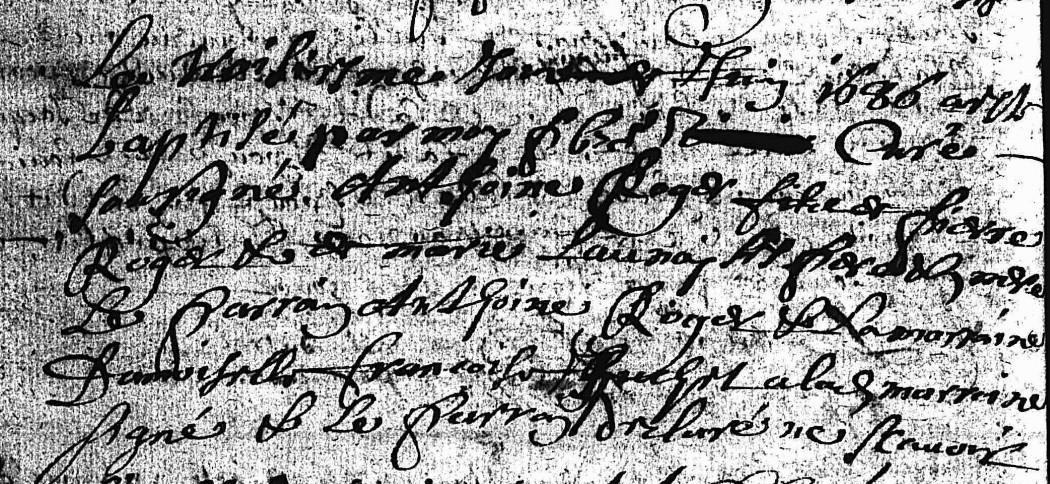 Le troisiesme jour de Juin 1686 a esté
baptisé par moy Curé
soussigné Anthoine Roger fils de pierre
Roger & de marie Launay ses pere & mere
Le parrain Anthoine Roger & La marraine
Damoiselle francoise a lad marraine
signé & Le parrain declaré ne scauoir